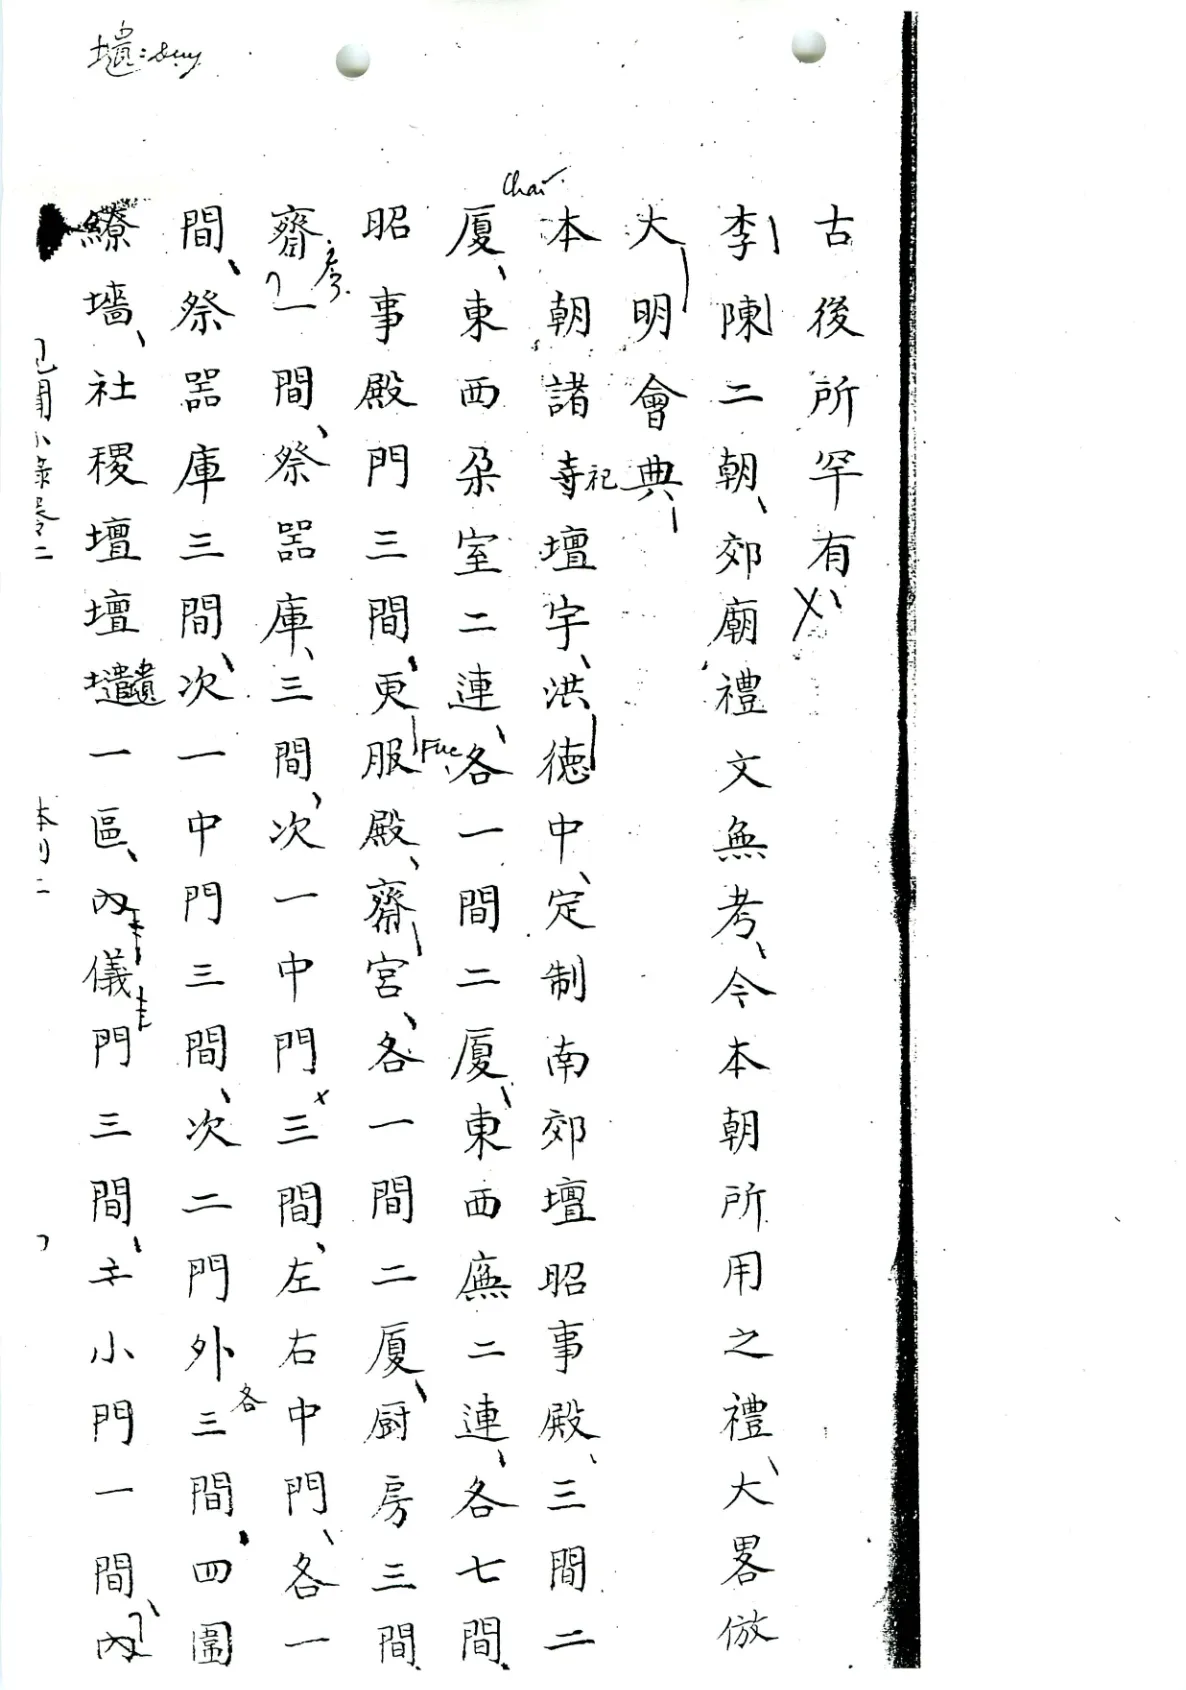 壝: Duy
古後所罕有
李陳二朝郊廟禮文無考今本朝所用之禮大畧倣
大明會典
Chái
本朝諸寺祀壇宇洪德中定制南郊壇昭事殿三間二
厦東西朶室二連各一間二厦東西廡二連各七間
昭事殿門三間更服殿齋宮各一間二厦厨房三間
齋一間祭噐庫三間次一中門三間左右中門各一
間祭噐庫三間次一中門三間次二門外各三間四圍
繚墻社稷壇壇壝一區內儀門三間小門一間內